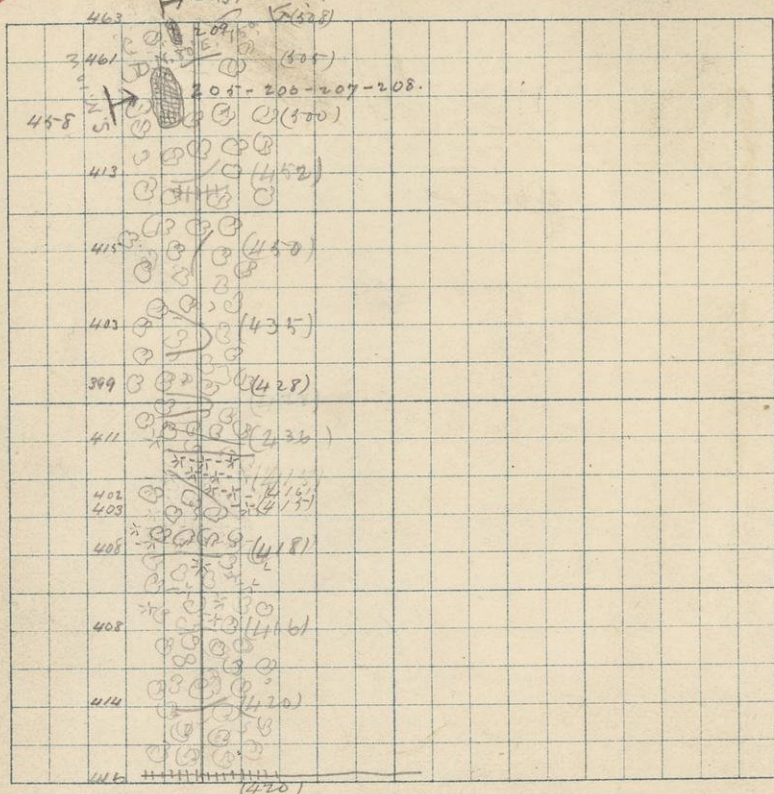 463 (508)
209
461 (505)
205-206-207-208.
458 (500)
413 (452)
415 (450)
403 (435)
399 (428)
411
402 (416)
403 (415)
408 (418)
408 (416)
414 (420)
416
(420)